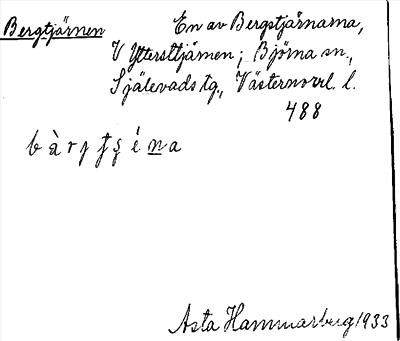 Bergtjärnen
En av Bergstjärnarna,
V Yttersttjärnen; Björna sn.,
Själevads tg., Västernorrl. l.
488
b à r j t ʂ é n a
Asta Hammarberg 1933